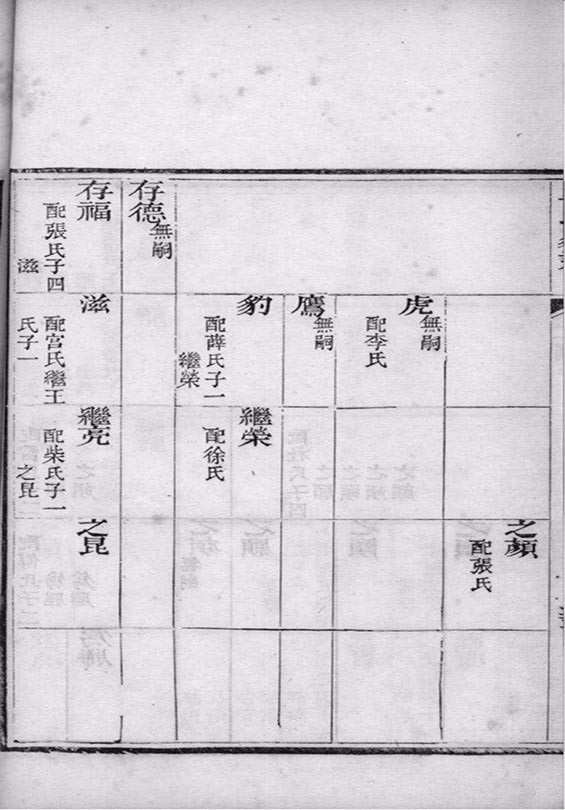 存德
無嗣
存福
配張氏子四
滋
虎
無嗣
配李氏
鷹
無嗣
豹
配薛氏子一
繼榮
滋
配宮氏繼王
氏子一
繼榮
配徐氏
繼亮
配柴氏子一
之昆
之顏
配張氏
之昆